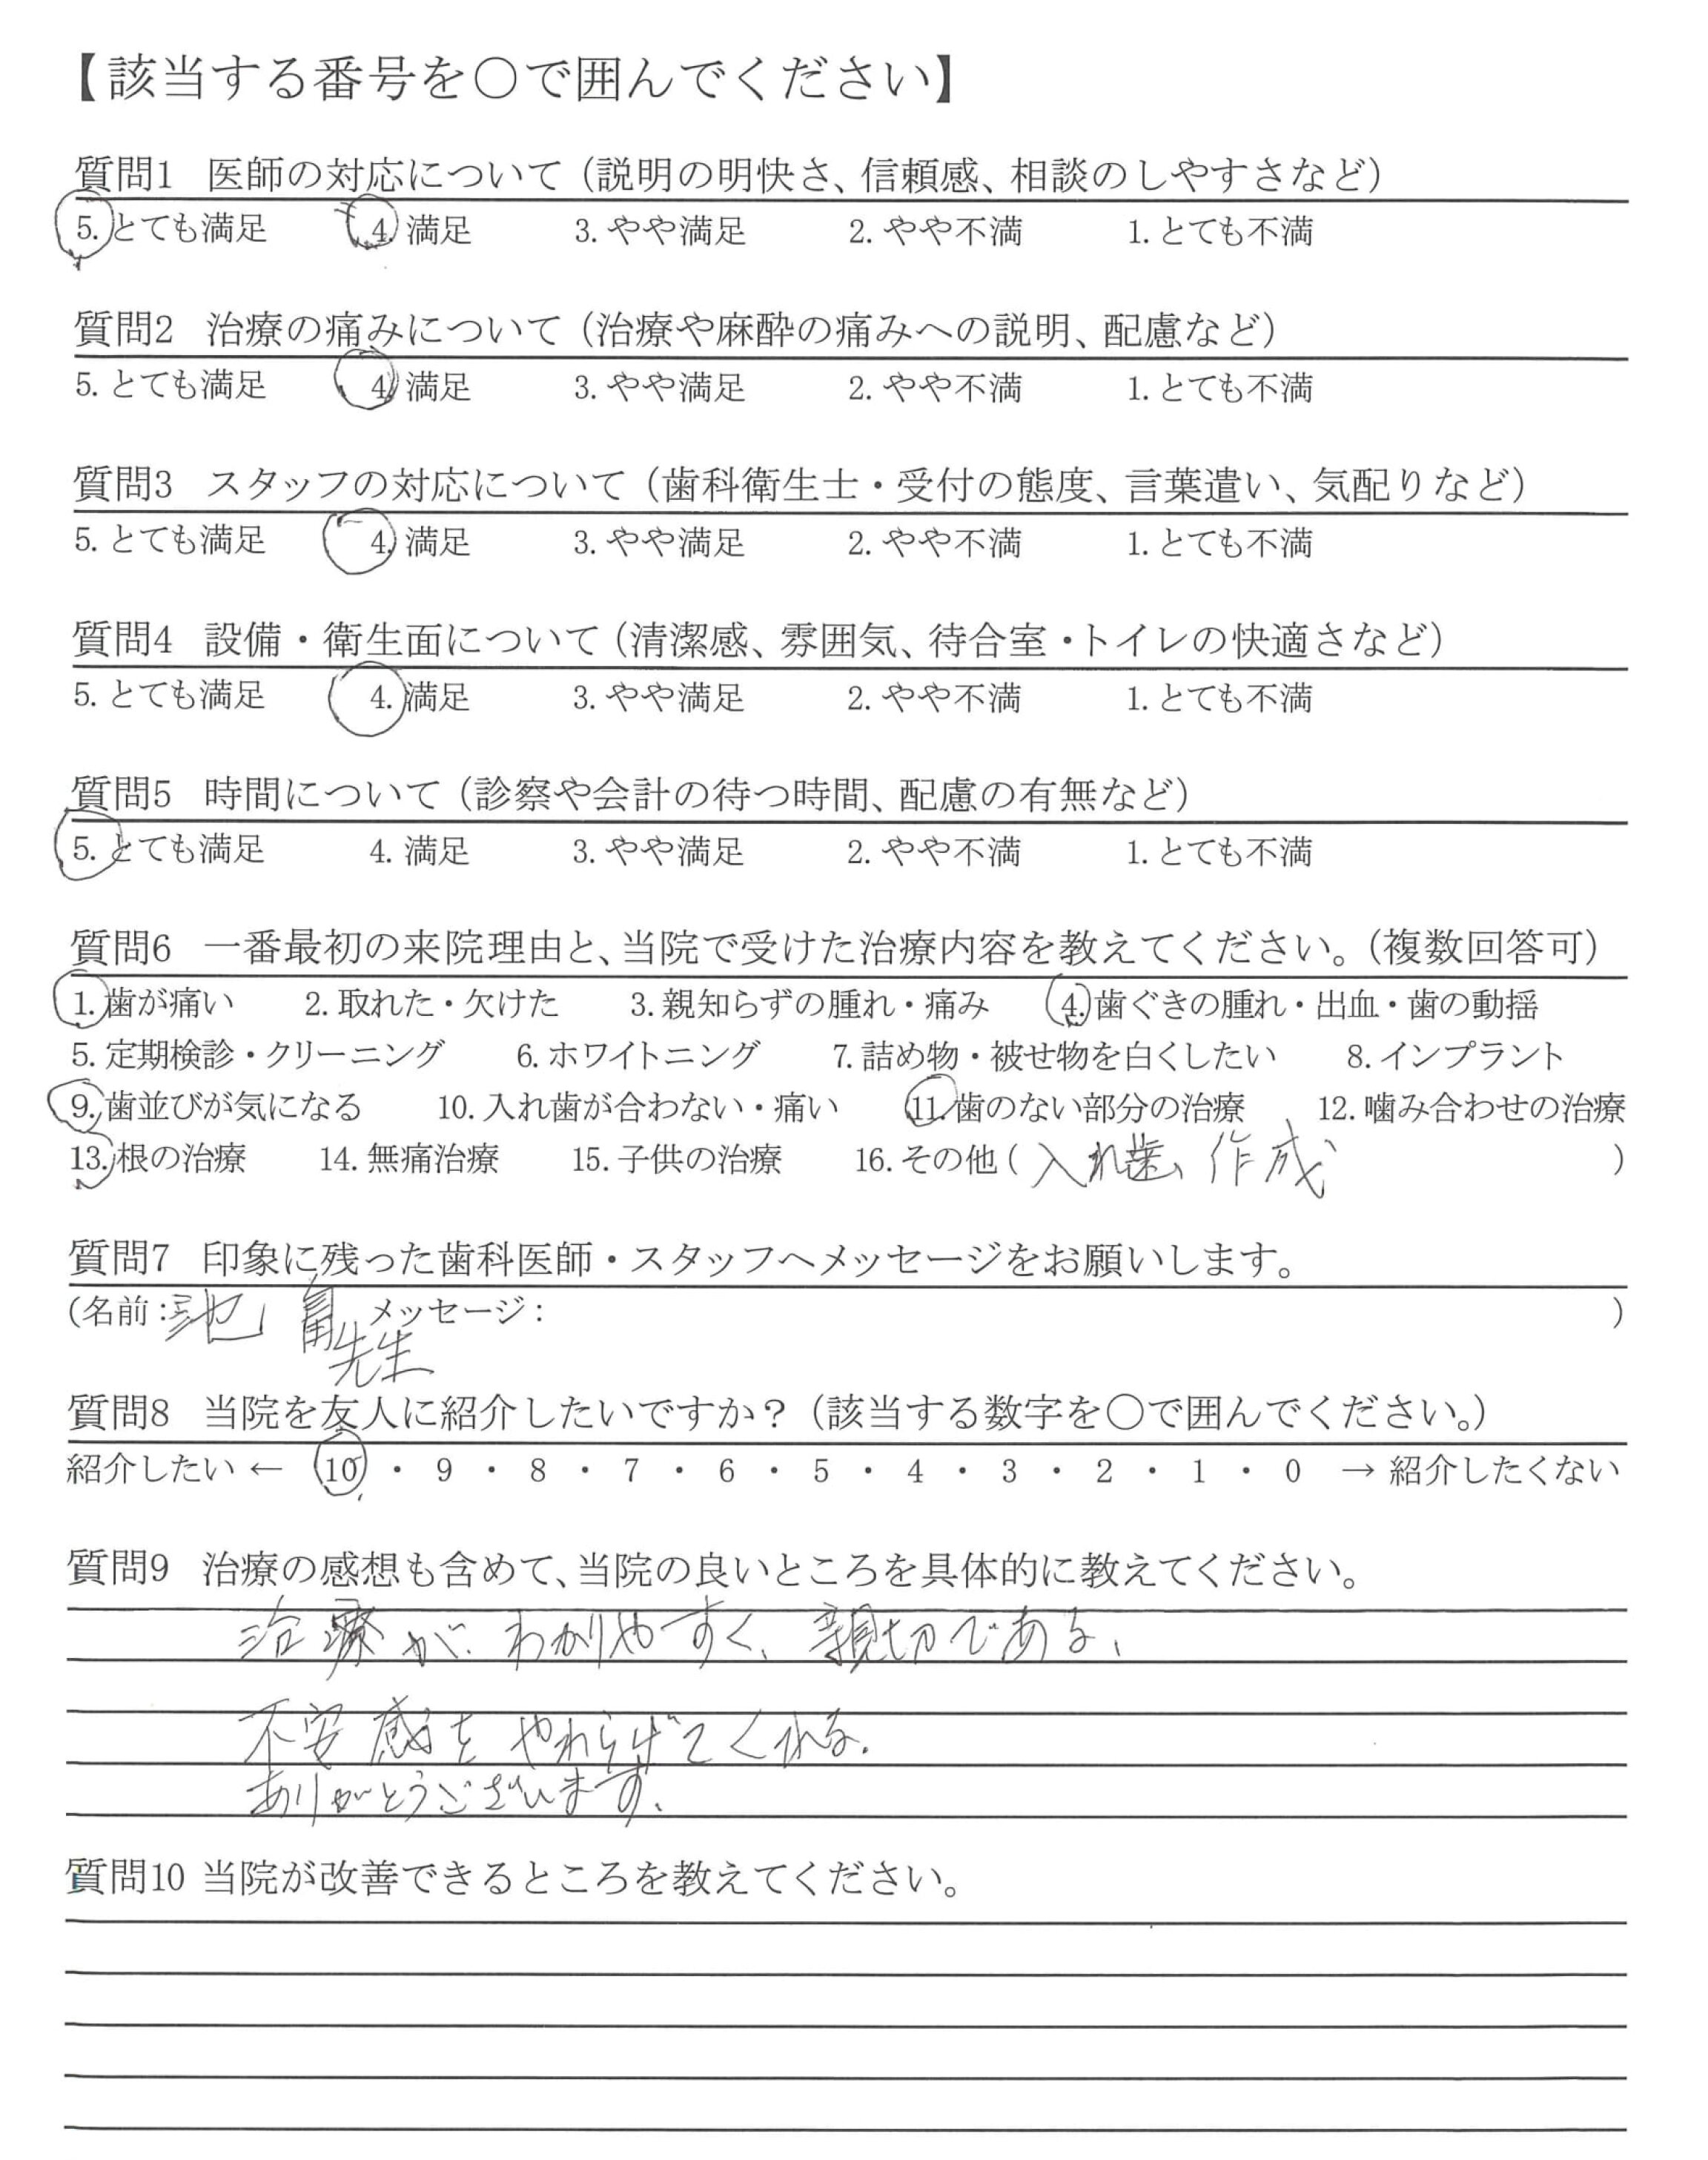 【該当する番号を○で囲んでください】
質問1 医師の対応について（説明の明快さ、信頼感、相談のしやすさなど）
5. とても満足 4. 満足 3. やや満足 2. やや不満 1. とても不満
質問2 治療の痛みについて（治療や麻酔の痛みへの説明、配慮など）
5. とても満足 4. 満足 3. やや満足 2. やや不満 1. とても不満
質問3 スタッフの対応について（歯科衛生士・受付の態度、言葉遣い、気配りなど）
5. とても満足 4. 満足 3. やや満足 2. やや不満 1. とても不満
質問4 設備・衛生面について（清潔感、雰囲気、待合室・トイレの快適さなど）
5. とても満足 4. 満足 3. やや満足 2. やや不満 1. とても不満
質問5 時間について（診察や会計の待つ時間、配慮の有無など）
5. とても満足 4. 満足 3. やや満足 2. やや不満 1. とても不満
質問6 一番最初の来院理由と、当院で受けた治療内容を教えてください。（複数回答可）
1. 歯が痛い 2. 取れた・欠けた 3. 親知らずの腫れ・痛み 4. 歯ぐきの腫れ・出血・歯の動揺
5. 定期検診・クリーニング 6. ホワイトニング 7. 詰め物・被せ物を白くしたい 8. インプラント
9. 歯並びが気になる 10. 入れ歯が合わない・痛い 11. 歯のない部分の治療 12. 噛み合わせの治療
13. 根の治療 14. 無痛治療 15. 子供の治療 16. その他（入れ歯、作成）
質問7 印象に残った歯科医師・スタッフへメッセージをお願いします。
（名前：池 メッセージ： ）
先生
質問8 当院を友人に紹介したいですか？（該当する数字を○で囲んでください。）
紹介したい ← 10 ・ 9 ・ 8 ・ 7 ・ 6 ・ 5 ・ 4 ・ 3 ・ 2 ・ 1 ・ 0 → 紹介したくない
質問9 治療の感想も含めて、当院の良いところを具体的に教えてください。
治療が、わかりやすく、親切である、
不安感をやわらげてくれる。
ありがとうございます。
質問10 当院が改善できるところを教えてください。